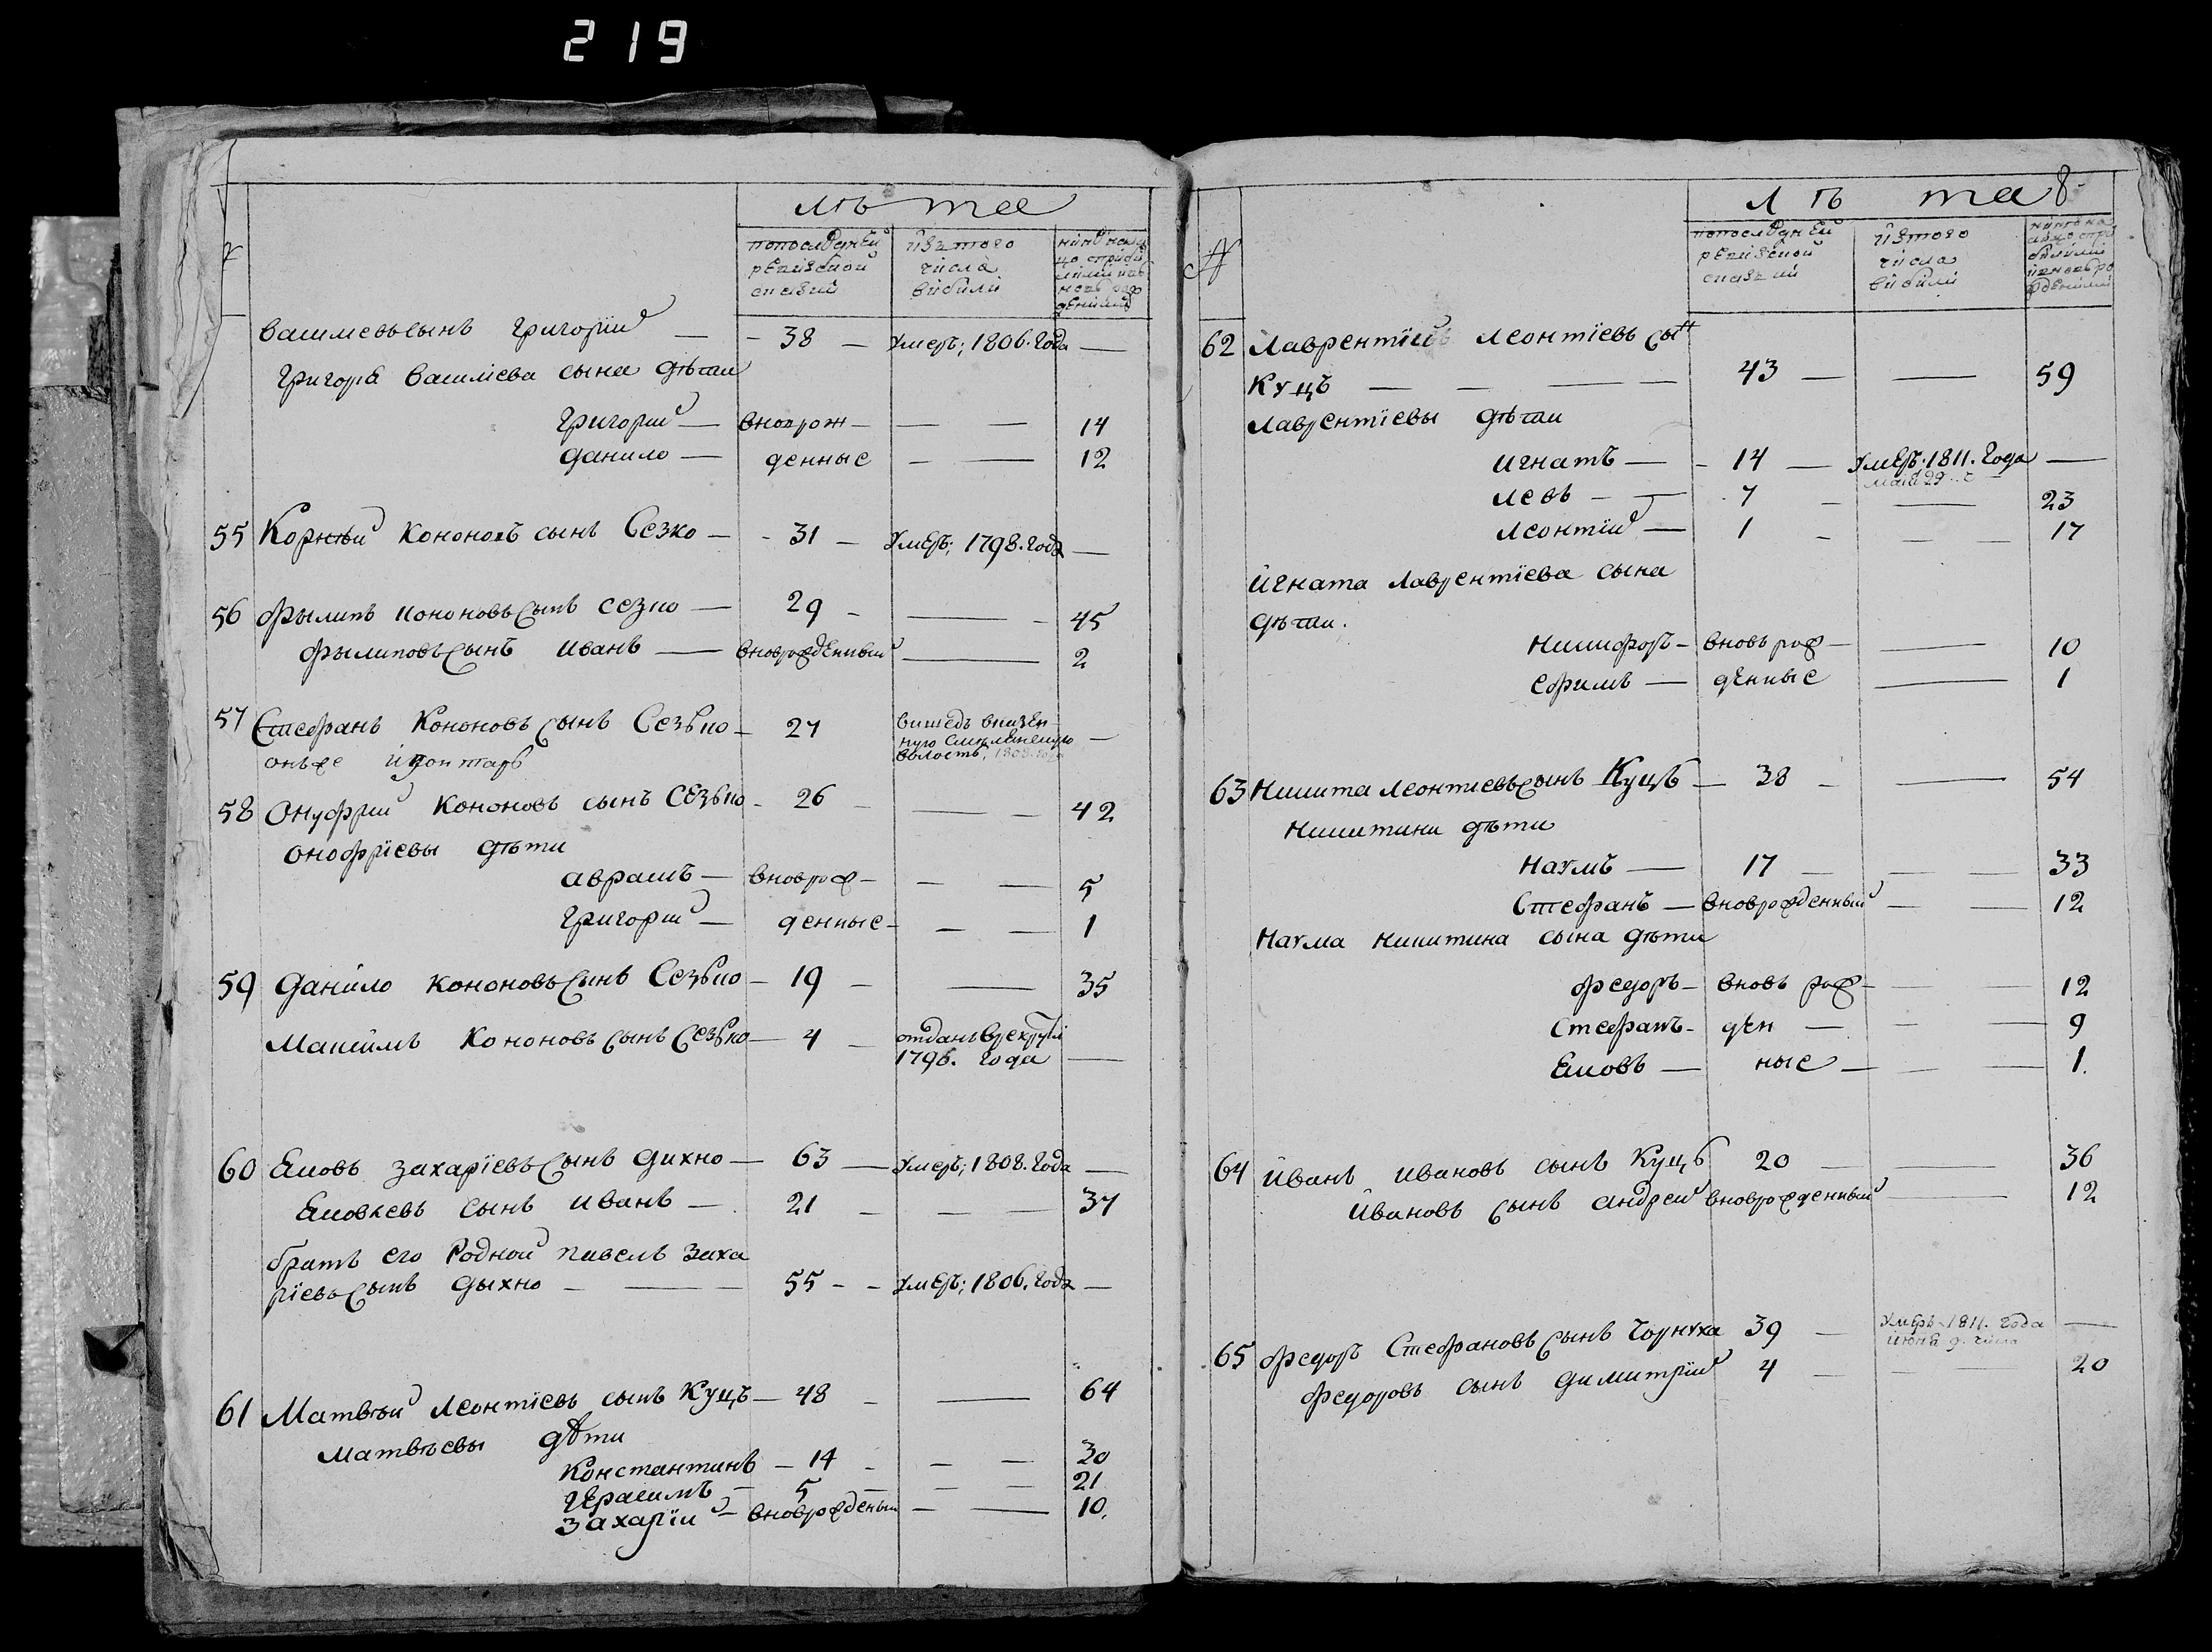 219
лѣта
№
по последней ревизской сказки
изъ того числа выбыли
Васильевъ сынъ Григорїй — 38 — Умеръ; 1806. Года —
Григоря Василїева сына дѣти
Григорїй — вноврож — — — 14
Данило — денные — — 12
55 Корнѣй Кононовъ сынъ Сезко — 31 — Умеръ; 1798. Года —
56 Филипъ Кононовъ сынъ Сезко — 29 — — 45
Филиповъ сынъ Иванъ — вноврожденный — 2
57 Стефанъ Кононовъ сынъ Сезько — 27
волость, 1808. года —
онъже
58 Онуфрий Кононовъ сынъ Сезько — 26 — — 42
Онофрїевы дѣти
Аврамъ — вноврож — — — 5
Григорий — денные — — — 1
59 Данило Кононовъ сынъ Сезько — 19 — — 35
Максимъ Кононовъ сынъ Сезько — 4 — отданъ врекруты
1796. Года —
60 Яковъ Захарїевъ сынъ Дихно — 63 — Умеръ; 1808. Года —
Яковлевъ сынъ Иванъ — 21 — — — 37
братъ его Родной Павелъ Заха
рїевъ сынъ Дыхно — — 55 — Умеръ; 1806. Года —
61 Матвѣй Леонтїевъ сынъ Куцъ — 48 — — 64
Матвѣевы дѣти
Константинъ — 14 — — — 30
Герасимъ — 5 — — — 21
Захарїй — вноврожденый — — 10.
Лѣта 8
№
по последней ревизской сказки
изъ того числа выбыли
62 Лаврентїй Леонтїевъ сын
Куцъ — — — 43 — — 59
Лаврентїевы дѣти
Игнатъ — 14 — Умеръ. 1811. Года —
маїя 29
Левъ — 7 — — 23
Леонтїй — 1 — — — 17
Игната Лаврентїева сына
дѣти.
Никифоръ — вновь рож — — 10
Ефимъ — денные — 1
63 Никита Леонтиевъ сынъ Куцъ — 38 — — 54
Никитини дѣти
Наумъ — 17 — — — 33
Стефанъ — вноврожденный — — 12
Наума Никитина сына дѣти
Федоръ — вновь рож — — — 12
Стефанъ — ден — — — 9
Яковъ — ные — — — 1.
64 Иванъ Ивановъ сынъ Куцъ 20 — — 36
Ивановъ сынъ Андрей вноврожденный — 12
65 Федоръ Стефановъ сынъ Чорнуха 39 — Умеръ. 1811. Года —
июня 9. числа
Федоровъ сынъ Димитрїй 4 — — 20